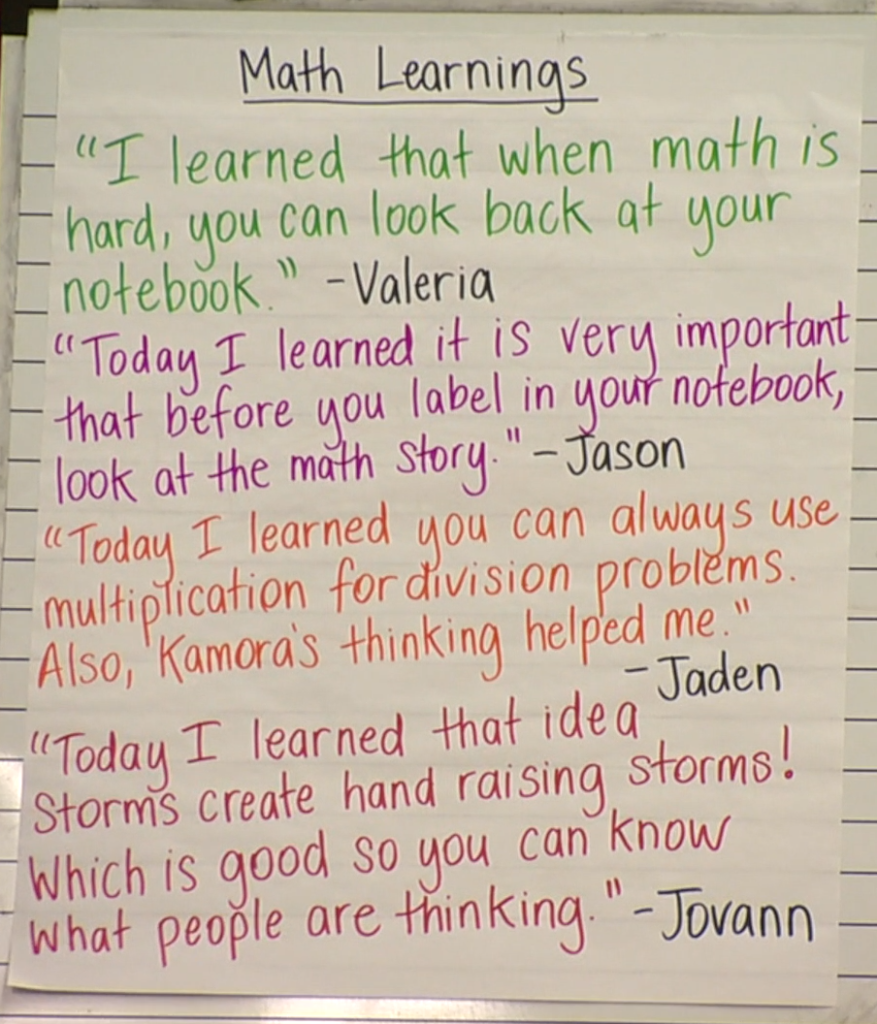 Math Learnings
"I learned that when math is
hard, you can look back at your
notebook." -Valeria
"Today I learned it is very important
that before you label in your notebook,
look at the math story." -Jason
"Today I learned you can always use
multiplication for division problems.
Also, Kamora's thinking helped me."
-Jaden
"Today I learned that idea
Storms create hand raising storms!
Which is good so you can know
what people are thinking." -Jovann